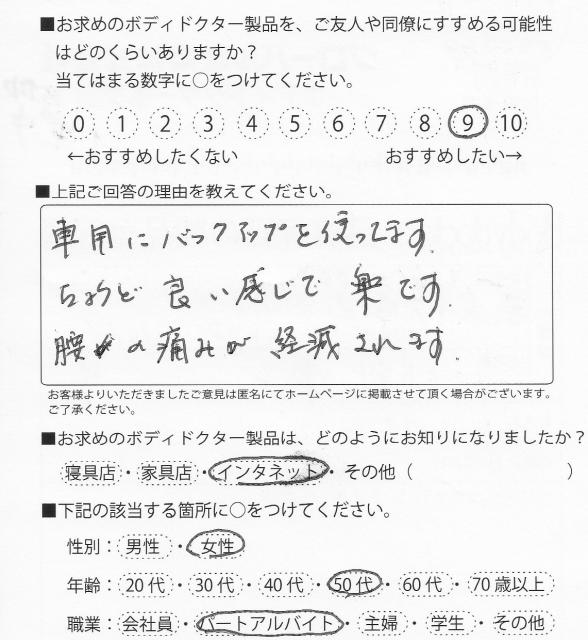 ■お求めのボディドクター製品を、ご友人や同僚にすすめる可能性
はどのくらいありますか？
当てはまる数字に○をつけてください。
0 1 2 3 4 5 6 7 8 9 10
←おすすめしたくない おすすめしたい→
■上記ご回答の理由を教えてください。
車用にバックアップを使ってます.
ちょうど 良い感じで 楽です.
腰の痛みが 経減されます.
お客様よりいただきましたご意見は匿名にてホームページに掲載させて頂く場合がございます。
ご了承ください。
■お求めのボディドクター製品は、どのようにお知りになりましたか？
寝具店・家具店・インタネット・その他（ ）
■下記の該当する箇所に○をつけてください。
性別：男性・女性
年齢：20代・30代・40代・50代・60代・70歳以上
職業：会社員・パートアルバイト・主婦・学生・その他